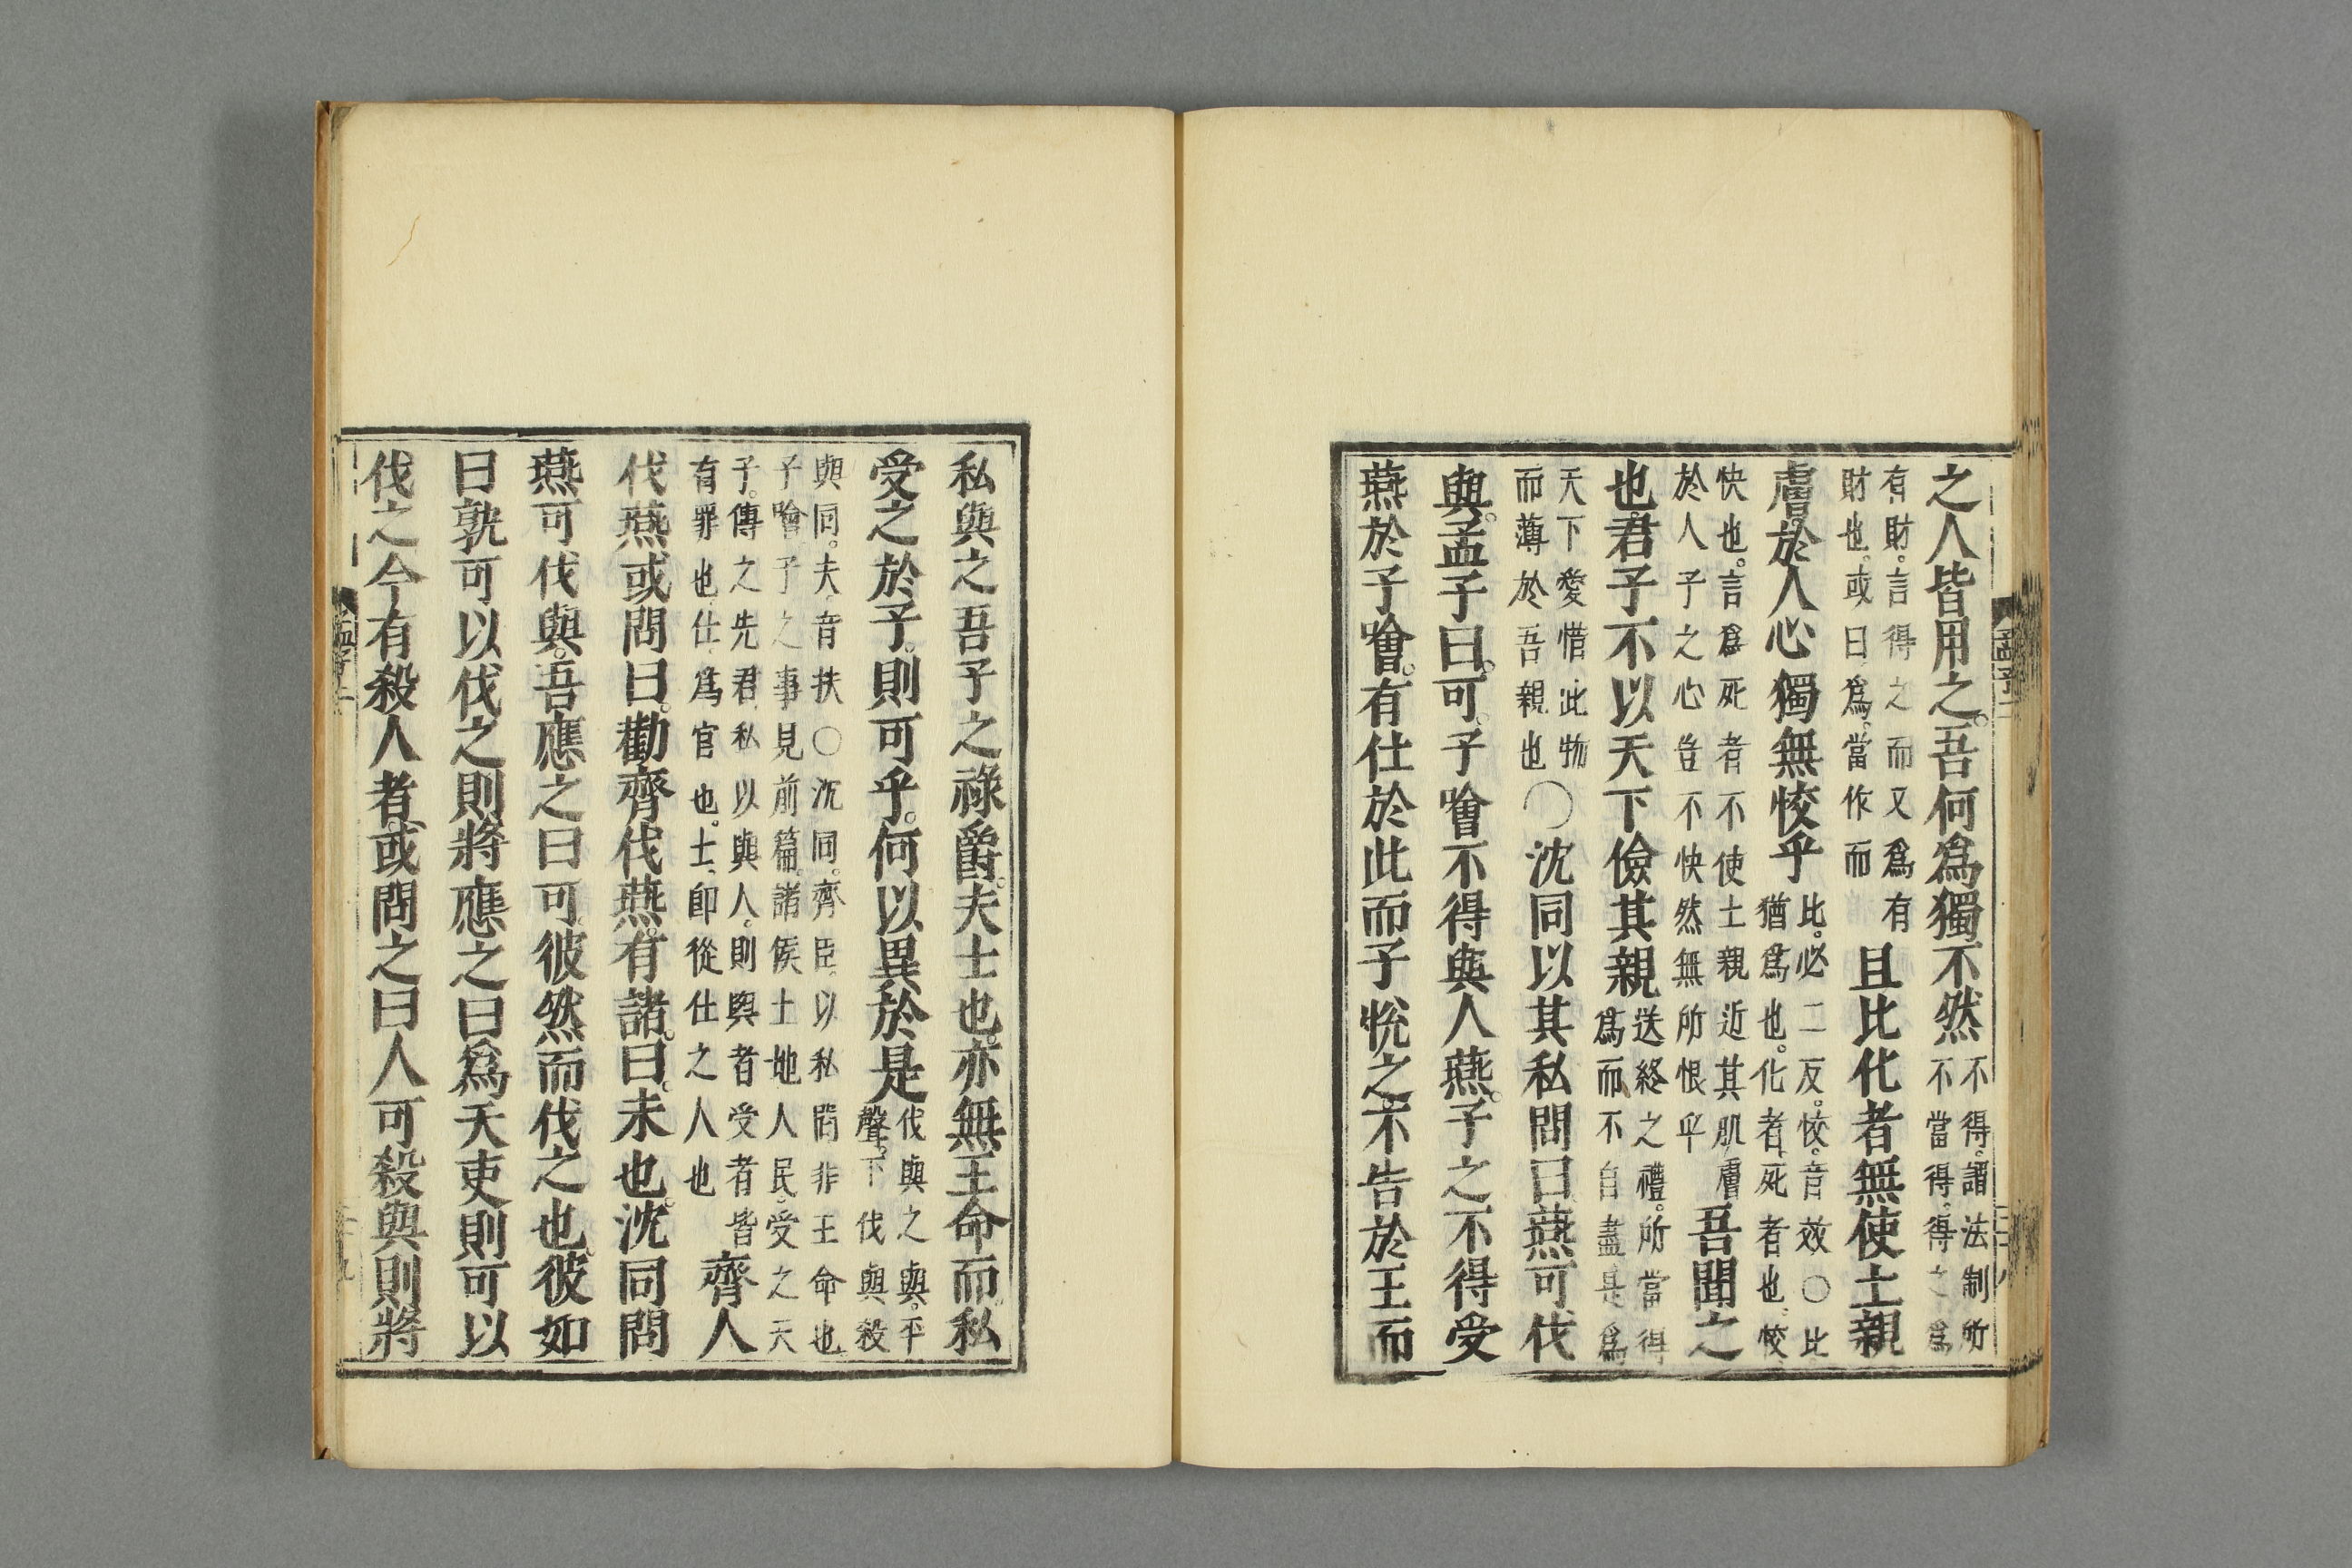 之人皆用之。吾何爲獨不然不得。謂法制所
不當得。得之爲
有財。言得之而又爲有
財也。或曰、爲。當作而
且比化者無使土親
膚。於人心獨無恔乎比。必二反。恔。音效○比
猶爲也。化者、死者也。恔
快也。言爲死者不使土親近其肌膚
於人子之心豈不快然無所恨乎
吾聞之
也。君子不以天下儉其親送終之禮。所當得
爲而不自盡是爲
天下愛惜此物
而薄於吾親也
○沈同以其私問曰燕可伐
與。孟子曰。可。子噲不得與人燕。子之不得受
燕於子噲。有仕於此而子悅之。不告於王而
私與之吾子之祿爵。夫士也。亦無王命而私
受之於子。則可乎。何以異於是伐與之與。平
聲。下伐與殺
與同。夫、音扶○沈同。齊臣。以私問非王命也
子噲子之事見前篇。諸侯土地人民。受之天
子。傳之先君私以與人。則與者受者皆
有罪也仕、爲官也。士、卽從仕之人也
齊人
伐燕或問曰。勸齊伐燕。有諸。曰。未也。沈同問
燕可伐與。吾應之曰可。彼然而伐之也。彼如
曰孰可以伐之則將應之曰爲天吏則可以
伐之今有殺人者。或問之曰人可殺與則將